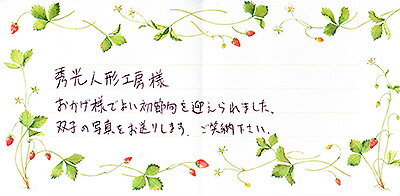 秀光人形工房様
おかげ様でよい初節句を迎えられました。
双子の写真をお送りします。ご笑納下さい。